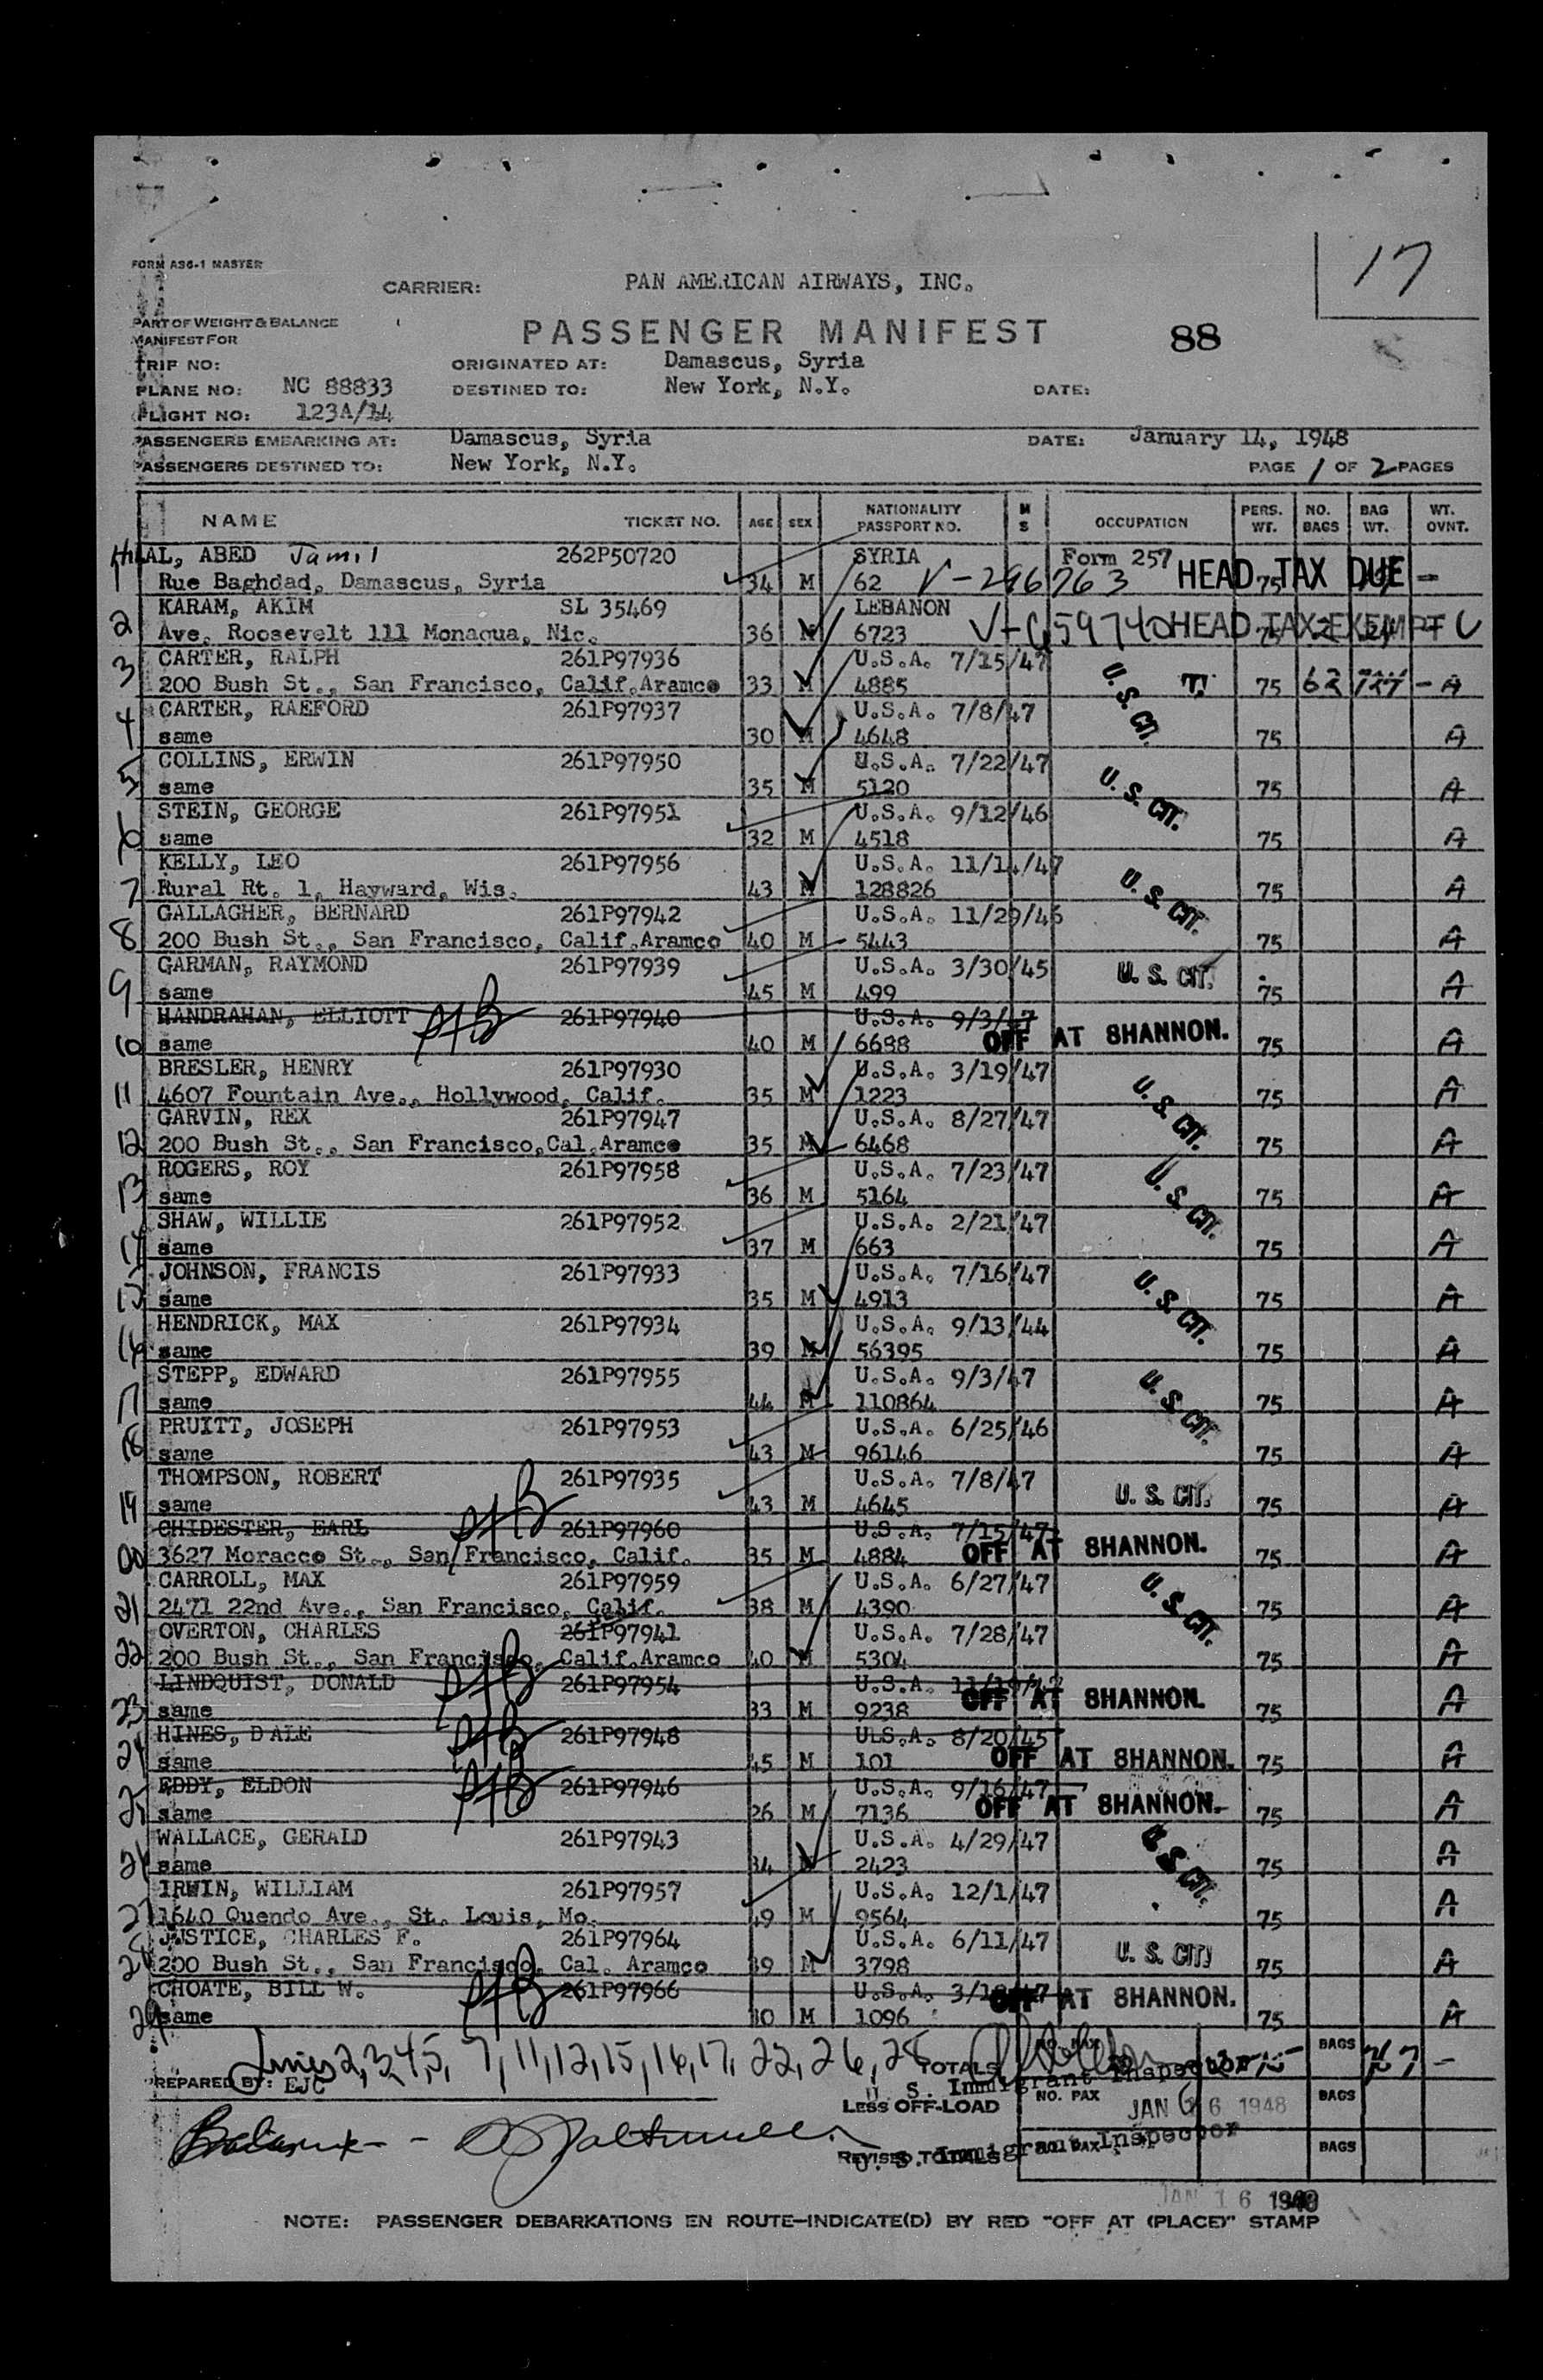 17
FORM A36-1 MASTER
CARRIER: PAN AMERICAN AIRWAYS, INC.
PART OF WEIGHT & BALANCE
MANIFEST FOR
PASSENGER MANIFEST 88
TRIP NO: ORIGINATED AT: Damascus, Syria
PLANE NO: NC 88833 DESTINED TO: New York, N.Y. DATE:
FLIGHT NO: 123A/14
PASSENGERS EMBARKING AT: Damascus, Syria DATE: January 14, 1948
PASSENGERS DESTINED TO: New York, N.Y. PAGE 1 OF 2 PAGES
NAME TICKET NO. AGE SEX NATIONALITY PASSPORT NO. M S OCCUPATION PERS. WT. NO. BAGS BAG WT. WT. OVNT.
HILAL, ABED Jamil 262P50720 SYRIA Form 257 HEAD TAX DUE
1 Rue Baghdad, Damascus, Syria 34 M 62 V-296763 75 -
KARAM, AKIM SL 35469 LEBANON
2 Ave. Roosevelt 111 Monaqua, Nic. 36 M 6723 HEAD TAX EXEMPT
3 CARTER, RALPH 261P97936 U.S.A. 7/15/47
200 Bush St., San Francisco, Calif.Aramco 33 M 4885 U. S. CIT. 75 62 - A
4 CARTER, RAEFORD 261P97937 U.S.A. 7/8/47
same 30 M 4648 75 A
5 COLLINS, ERWIN 261P97950 U.S.A. 7/22/47
same 35 M 5120 U. S. CIT. 75 A
6 STEIN, GEORGE 261P97951 U.S.A. 9/12/46
same 32 M 4518 75 A
7 KELLY, LEO 261P97956 U.S.A. 11/14/47
Rural Rt. 1, Hayward, Wis. 43 M 128826 U. S. CIT. 75 A
8 GALLAGHER, BERNARD 261P97942 U.S.A. 11/29/46
200 Bush St., San Francisco, Calif.Aramco 40 M 5443 75 A
9 GARMAN, RAYMOND 261P97939 U.S.A. 3/30/45 U. S. CIT.
same 45 M 499 75 A
HANDRAHAN, ELLIOTT 261P97940 U.S.A. 9/3/47 OFF AT SHANNON.
10 same 40 M 6688 75 A
BRESLER, HENRY 261P97930 U.S.A. 3/19/47
11 4607 Fountain Ave., Hollywood, Calif. 35 M 1223 U. S. CIT. 75 A
GARVIN, REX 261P97947 U.S.A. 8/27/47
12 200 Bush St., San Francisco,Cal.Aramco 35 M 6468 75 A
ROGERS, ROY 261P97958 U.S.A. 7/23/47
13 same 36 M 5164 U. S. CIT. 75 A
SHAW, WILLIE 261P97952 U.S.A. 2/21/47
14 same 37 M 663 75 A
JOHNSON, FRANCIS 261P97933 U.S.A. 7/16/47
15 same 35 M 4913 U. S. CIT. 75 A
HENDRICK, MAX 261P97934 U.S.A. 9/13/44
16 same 39 M 56395 75 A
STEPP, EDWARD 261P97955 U.S.A. 9/3/47
17 same 44 M 110864 U. S. CIT. 75 A
PRUITT, JOSEPH 261P97953 U.S.A. 6/25/46
18 same 43 M 96146 75 A
THOMPSON, ROBERT 261P97935 U.S.A. 7/8/47
19 same 43 M 4645 U. S. CIT. 75 A
CHIDESTER, EARL 261P97960 U.S.A. 7/15/47 OFF AT SHANNON.
20 3627 Moracco St., San Francisco, Calif. 35 M 4884 75 A
CARROLL, MAX 261P97959 U.S.A. 6/27/47
21 2471 22nd Ave., San Francisco, Calif. 38 M 4390 U. S. CIT. 75 A
OVERTON, CHARLES 261P97941 U.S.A. 7/28/47
22 200 Bush St., San Francisco, Calif.Aramco 40 M 5304 75 A
LINDQUIST, DONALD 261P97954 U.S.A. OFF AT SHANNON.
23 same 33 M 9238 75 A
HINES, DALE 261P97948 ULS.A. 8/20/45
24 same 45 M 101 OFF AT SHANNON. 75 A
EDDY, ELDON 261P97946 U.S.A. 9/16/47
25 same 26 M 7136 OFF AT SHANNON. 75 A
WALLACE, GERALD 261P97943 U.S.A. 4/29/47
26 same 34 M 2423 U. S. CIT. 75 A
IRWIN, WILLIAM 261P97957 U.S.A. 12/1/47
27 1640 Quendo Ave., St. Louis, Mo. 49 M 9564 75 A
JUSTICE, CHARLES F. 261P97964 U.S.A. 6/11/47 U. S. CIT
28 200 Bush St., San Francisco, Cal. Aramco 39 M 3798 75 A
CHOATE, BILL W. 261P97966 U.S.A. OFF AT SHANNON.
29 same 30 M 1096 75 A
Lines 2, 3, 4, 5, 7, 11, 12, 15, 16, 17, 22, 26, 28 TOTALS NO. PAX BAGS
PREPARED BY: EJC U. S. Immigrant Inspector
LESS OFF-LOAD NO. PAX JAN 16 1948 BAGS
REVISED TOTALS U. S. Immigrant Inspector BAGS
JAN 16 1948
NOTE: PASSENGER DEBARKATIONS EN ROUTE—INDICATE(D) BY RED "OFF AT (PLACE)" STAMP